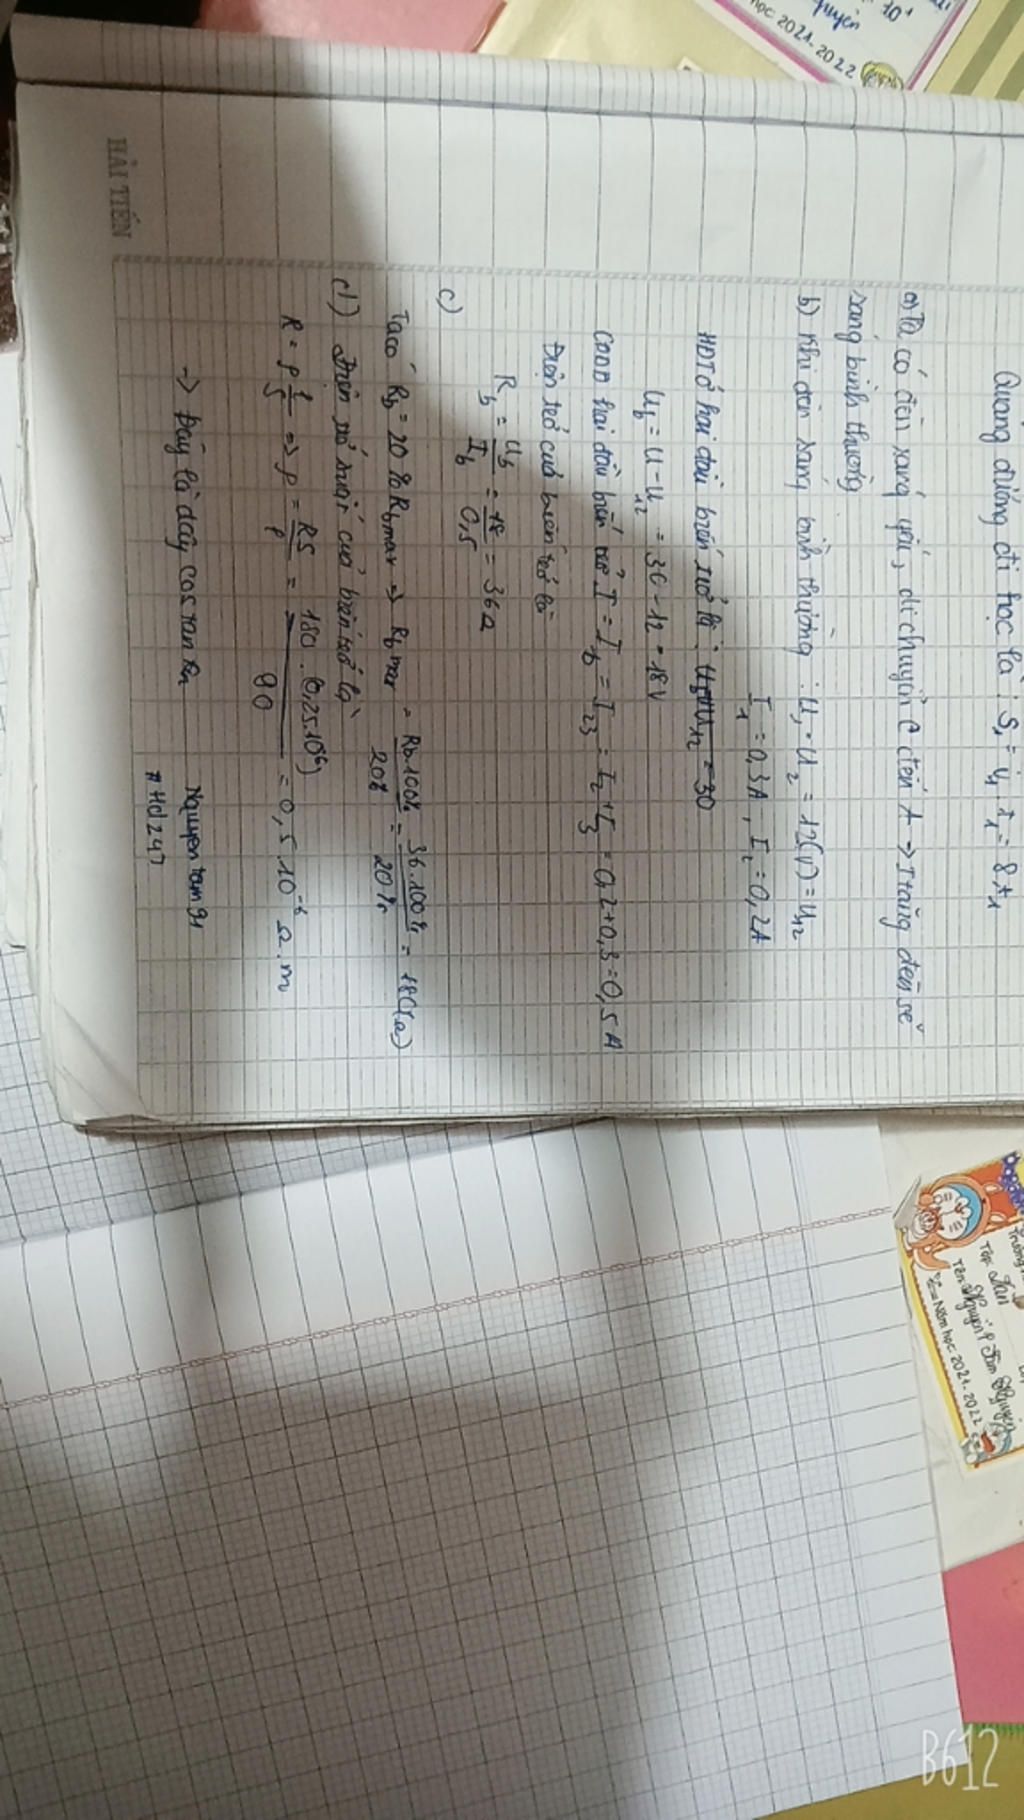 Quảng đường đi học là : S₁ = v₁ . t₁ = 8.t₁
a) Ta có đèn sáng yếu, di chuyển C đến A → I tăng đèn sẽ
sáng bình thường
b) Khi đèn sáng bình thường : U₁ = U₂ = 12(V) = U₁₂
I₁ = 0,3A , I₂ = 0,2A
HĐT ở hai đầu biến trở là :
U_b = U - U₁₂ = 30 - 12 = 18V
CĐDĐ hai đầu biến trở I = I_b = I₂₃ = I₂ + I₃ = 0,2+0,3 = 0,5A
Điện trở của biến trở là
R_b = U_b / I_b = 18 / 0,5 = 36Ω
c)
Ta có R_b = 20% R_bmax ⇒ R_bmax = R_b.100% / 20% = 36.100% / 20% = 18(Ω)
d) Điện trở suất của biến trở là
R = ρ l/S ⇒ ρ = RS / l = 180 . (0,25.10⁻⁶) / 90 = 0,5.10⁻⁶ Ω.m
→ Đây là dây constantan
Nguyentam91
#Hd247
HẢI TIẾN
Quyên
học 2021-2022
Trường
Lớp
Tập: Toán
Tên: Nguyễn P Tâm Nguyên
Năm học 2021-2022
B612